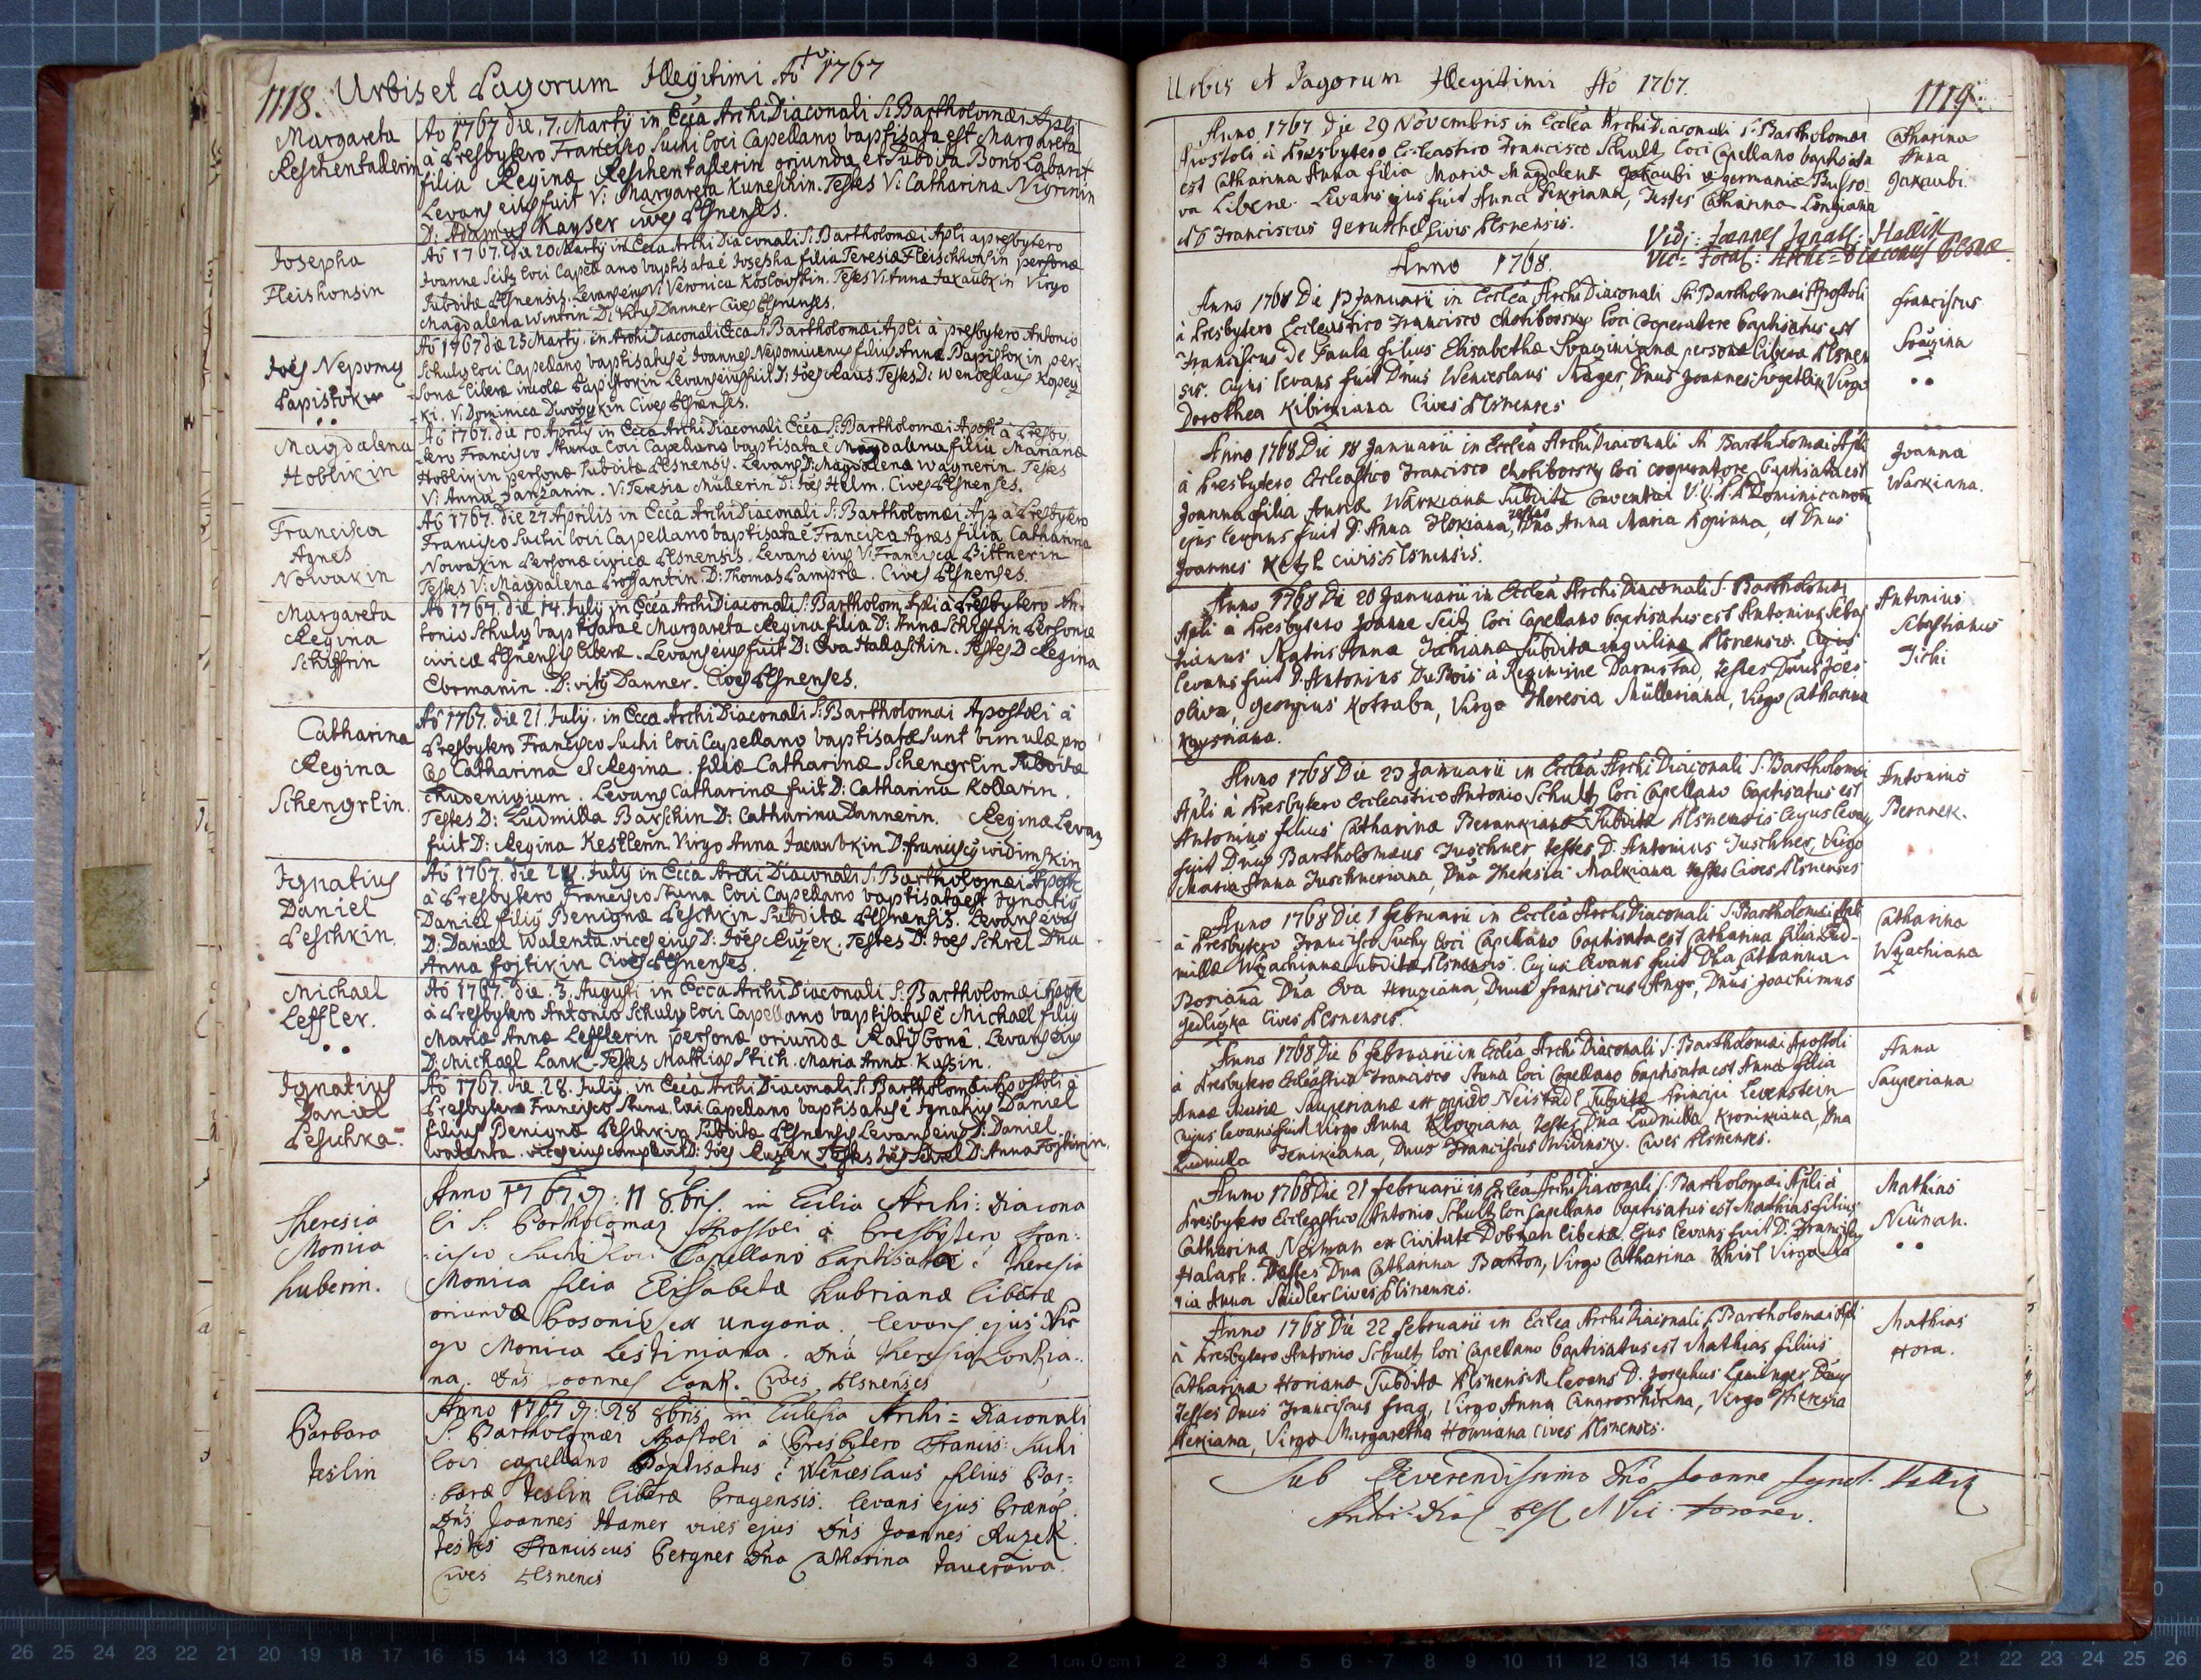 1118. Urbis et Pagorum Illegitimi Aõ 1767
Margareta
Reschentallerin
Aõ 1767 die. 7. Martÿ in Ecća ArchiDiaconali S: Bartholomæi Apli
à Presbytero Francisco Suchi loci Capellano baptisata est Margareta
filia Reginæ Reschentallerin oriunda et Subdita
Levans eius fuit V: Margareta Kuneschin. Testes V: Catharina Nigrinin
D: Adamus Kayser cives Plsnenses.
Josepha
Fleishonsin
Aõ 1767. die 20 Martÿ in Ecca ArchiDiaconali S: Bartholomæi Apli a presbytero
Joanne Seitz loci Capellano baptisata é Josepha filia Teresiæ Fleischhonsin personæ
Subditæ Plsnensis. Levans eius V: Veronica Koslowskin. Testes V: Anna Jakaubkin Virgo
Magdalena Wintrin D: Vitus Danner Cives Plsnenses.
Joës Nepomu
Papistokin
Aõ 1767 die 25 Martÿ. in ArchiDiaconali Ecca S: Bartholomæi Apli à presbytero Antonio
Schulz loci Capellano baptisatus é Joannes Nepomucenus filius Annæ Papistok in per-
sonæ liberæ incolæ Papistokin Levans eius fuit D: Joës Claus. Testes D: Wenceslaus Kopey
-ki. V: Dominica Dworzykin Cives Plsnenses.
Magdalena
Hoblik in
Aõ 1767. die 10 Aprilÿ in Ecca ArchiDiaconali Ecca S: Bartholomæi Apost: à Presby
-tero Francisco Stuna loci Capellano baptisata é Magdalena filia Marianæ
Hoblikin personæ subditæ Plsnensis. Levans D: Magdalena Wagnerin. Testes
V: Anna Janzanin. V: Teresia Müllerin D: Joës Helm. Cives Plsnenses.
Francisca
Agnes
Nowakin
Aõ 1767. die 27 Aprilis in Ecca ArchiDiaconali S: Bartholomæi Ap: à Presbytero
Francisco Suchi loci Capellano baptisata é Francisca Agnes filia Catharinæ
Nowakin Personæ civicæ Plsnensis. Levans eius V: Francisca Bittnerin
Testes V: Magdalena Prossantin. D: Thomas Lamprla. Cives Plsnenses.
Margareta
Regina
Schiffrin
Aõ 1767. die 14. Julÿ in Ecca ArchiDiaconali S: Bartholom. Apli à Presbytero An-
tonio Schulz baptisata é Margareta Regina filia D: Annæ Schiffrin Personæ
civicæ Plsnensis liberæ. Levans eius fuit D: Eva Hallaschin. Testes D Regina
Ebrmanin. D: vitÿ Danner. Cives Plsnenses.
Catharina
Regina
Schengrlin.
Aõ 1767. die 21. Julÿ. in Ecca ArchiDiaconali S: Bartholomæi Apostoli à
Presbytero Francisco Suchi loci Capellano baptisatæ sunt bimulæ pro
les Catharina et Regina. filiæ Catharinæ Schengrlin Subditæ
Chudenizium. Levans Catharinæ fuit D: Catharina Kollarin.
Testes D: Ludmilla Barschin D: Catharina Dannerin. Reginæ Levans
fuit D: Regina Kestlerin. Virgo Anna Jacaubkin D: franciscÿ widimskin
Ignatius
Daniel
Peschkin.
Aõ 1767. die 28. Julÿ in Ecca Archi Diaconali S: Bartholomæi Apost:
à Presbytero Francisco Stuna loci Capellano baptisatus est Ignatiÿ
Daniel filiÿ Benignæ Peschkin Subditæ Plsnensis. Levans eius
D: Daniel Walenta. vices eius D: Joës Ruzek. Testes D: Joës Schrel Dna
Anna Fojtikin Cives Plsnenses.
Michael
Leffler.
Aõ 1767. die. 3. Augusti in Ecca ArchiDiaconali S: Bartholomæi Apost:
à Presbytero Antonio Schulz loci Capellano baptisatus é Michael filiÿ
Mariæ Annæ Lefflerin personæ oriundæ Ratisbonâ. Levans eius
D: Michael Lank. Testes Mathias Stich. Maria Anna Kassin.
Ignatius
Daniel
Peschka.
Aõ 1767. die. 28. Julÿ. in Ecca ArchiDiaconali S: Bartholomæi Apostoli à
Presbytero Francisco Stuna. loci Capellano baptisatus é Ignatius Daniel
filius Benignæ Peschkin Subditæ Plsnensis Levans eius D: Daniel
walenta. vices eius complevit D: Joës Ruzek Testes Joës Schrel D: Anna Fojtikin.
Theresia
Monica
Huberin.
Anno 1767 d: 11 8bris. in Eccliâ Archi: diacona
li S: Bartholomæi Apostoli à Presbytero Fran:
cisco Suchi loci Capellano baptisata é Theresia
Monica filia Elisabetæ Hubrianæ liberæ
oriundæ Posonio ex Ungaria, levans ejus Vir
go Monica Lestiniana. Dna Theresia Lonkia:
na. Dns Joannes Lonk. Cives Plsnenses
Barbara
Teslin
Anno 1767 d: 28 8bris in Ecclesia Archi = Diaconali
S: Bartholomæi Apostoli à Presbytero Francis: Suchi
loci capellano Baptisatus é Wenceslaus filius Bar:
baræ Teslin liberæ Pragensis. levans ejus
Dns Joannes Hamer vices ejus Dns Joannes Ruzek.
testes Franciscus Pergner Dna Catharina Tauerowa
Cives Plsnenes
Urbis et Pagorum Illegitimi Aõ 1767. 1119.
Anno 1767 Die 29 Novembris in Ecclea Archidiaconali S. Bartholomæi
Apostoli à Presbytero Eccleastico Francisco Schultz loci Capellano baptisata
est Catharina Anna filia Mariæ Magdalenæ Jakaubi è germania Busso-
va Liberæ. Levans ejus fuit Anna Pekriana, Testes Catharina Longiana
et D Franciscus Gerutschel Civis Plsnensis.
Catharina
Anna
Jakaubi.
Vidi: Joannes Ignati: Hallik
Vic: Foral: Archi = Diaconus Plsnæ
Anno 1768.
Anno 1768 Die 13 Januarii in Ecclea ArchiDiaconali Sti Bartholomæi Apostoli
à Presbytero Eccleastico Francisco Chotiborsky loci Cooperatore baptisatus est
Franciscus de Paula filius Elisabethæ Svaginianæ personæ liberæ Plsnen
sis. Cujus levans fuit Dnus Wenceslaus Mager, Dnus Joannes Svgetlik Virgo
Dorothea Kibiziana Cives Plsnenses
Franciscus
Svagina
Anno 1768 Die 18 Januarii in Ecclea ArchiDiaconali Sti Bartholomæi Apli
à Presbytero Eccleastico Francisco Chotiborsky loci cooperatore baptisata est
Joanna filia Annæ Warkianæ Subditæ Conventui V.V.P.P. Dominicanorũ
ejus levans fuit D. Anna Hokiana, testes Dna Anna Maria Kopiana, et Dnus
Joannes Ketzl civis Plsnensis.
Joanna
Warkiana.
Anno 1768 Die 20 Januarii in Ecclea ArchiDiaconali S. Bartholomæi
Apli à Presbytero Joanne Seitz loci Capellano baptisatus est Antonius Sebas
tianus Matris Annæ Jichianæ Subditæ inquilinæ Plsnensis. Cujus
levans fuit D. Antonius Du Bois à Regimine Darmstad, testes Dnus Joës
Oliva, Georgius Kotraba, Virgo Theresia Mülleriana, Virgo Catharina
Kaysriana.
Antonius
Sebastianus
Jichi
Anno 1768 Die 23 Januarii in Ecclea Archi Diaconali S. Bartholomæi
Apli à Presbytero Eccleastico Antonio Schultz loci Capellano baptisatus est
Antonius filius Catharinæ Berankianæ Subditæ Plsnensis Cujus levans
fuit Dnus Bartholomæus Tuschner, testes D. Antonius Tuschner, Virgo
Maria Anna Tuschneriana, Dna Theresia Malkiana testes Cives Plsnenses
Antonius
Beranek.
Anno 1768 Die 1 februarii in Ecclea ArchiDiaconali S. Bartholomæi Apli
à Presbytero Francisco Suchy loci Capellano baptisata est Catharina filia Lud-
millæ Wrzachianæ subditæ Plsnensis. Cujus levans fuit Dna Catharina
Bosiana Dna Eva Hruziana, Dnus Franciscus Angr, Dnus Joachimus
Gedliczka Cives Plsnenses.
Catharina
Wrzachiana
Anno 1768 Die 6 februarii in Ecclea ArchiDiaconali S. Bartholomæi Apostoli
à Presbytero Eccleastico Francisco Stuna loci Capellano baptisata est Anna filia
Annæ Mariæ Sauperianæ ex oppido Neistadl Subditæ Principi Levenstein
cujus levans fuit Virgo Anna Klopiana, testes Dna Ludmilla Kronikiana, Dna
Ludmilla Jenikiana, Dnus Franciscus Widimsky. Cives Plsnenses.
Anna
Sauperiana
Anno 1768 Die 21 februarii in Ecclea ArchiDiaconali S. Bartholomæi Apli à
Presbytero Eccleastico Antonio Schultz loci Capellano baptisatus est Mathias filius
Catharinæ Neiman ex Civitate Dobrzan liberæ. Ejus levans fuit D. Franciscus
Halask. Testes Dna Catharina Barton, Virgo Catharina Khisl Virgo Ma
ria Anna Seidler Cives Plsnenses.
Mathias
Neüman.
Anno 1768 Die 22 februarii in Ecclea ArchiDiaconali S. Bartholomæi Apli
à Presbytero Antonio Schultz loci Capellano baptisatus est Mathias filius
Catharinæ Horianæ Subditæ Plsnensis levans D. Josephus Leminger Dnus
Testes Dnus Franciscus Frag, Virgo Anna Cangroschiana, Virgo Theresia
Pekiana, Virgo Margaretha Horiniana Cives Plsnenses.
Mathias
Hora.
Sub Reverendissimo Dno Joanne Ignat. Hallik
Archi-Diac Plsn et Vic. Foraneo.